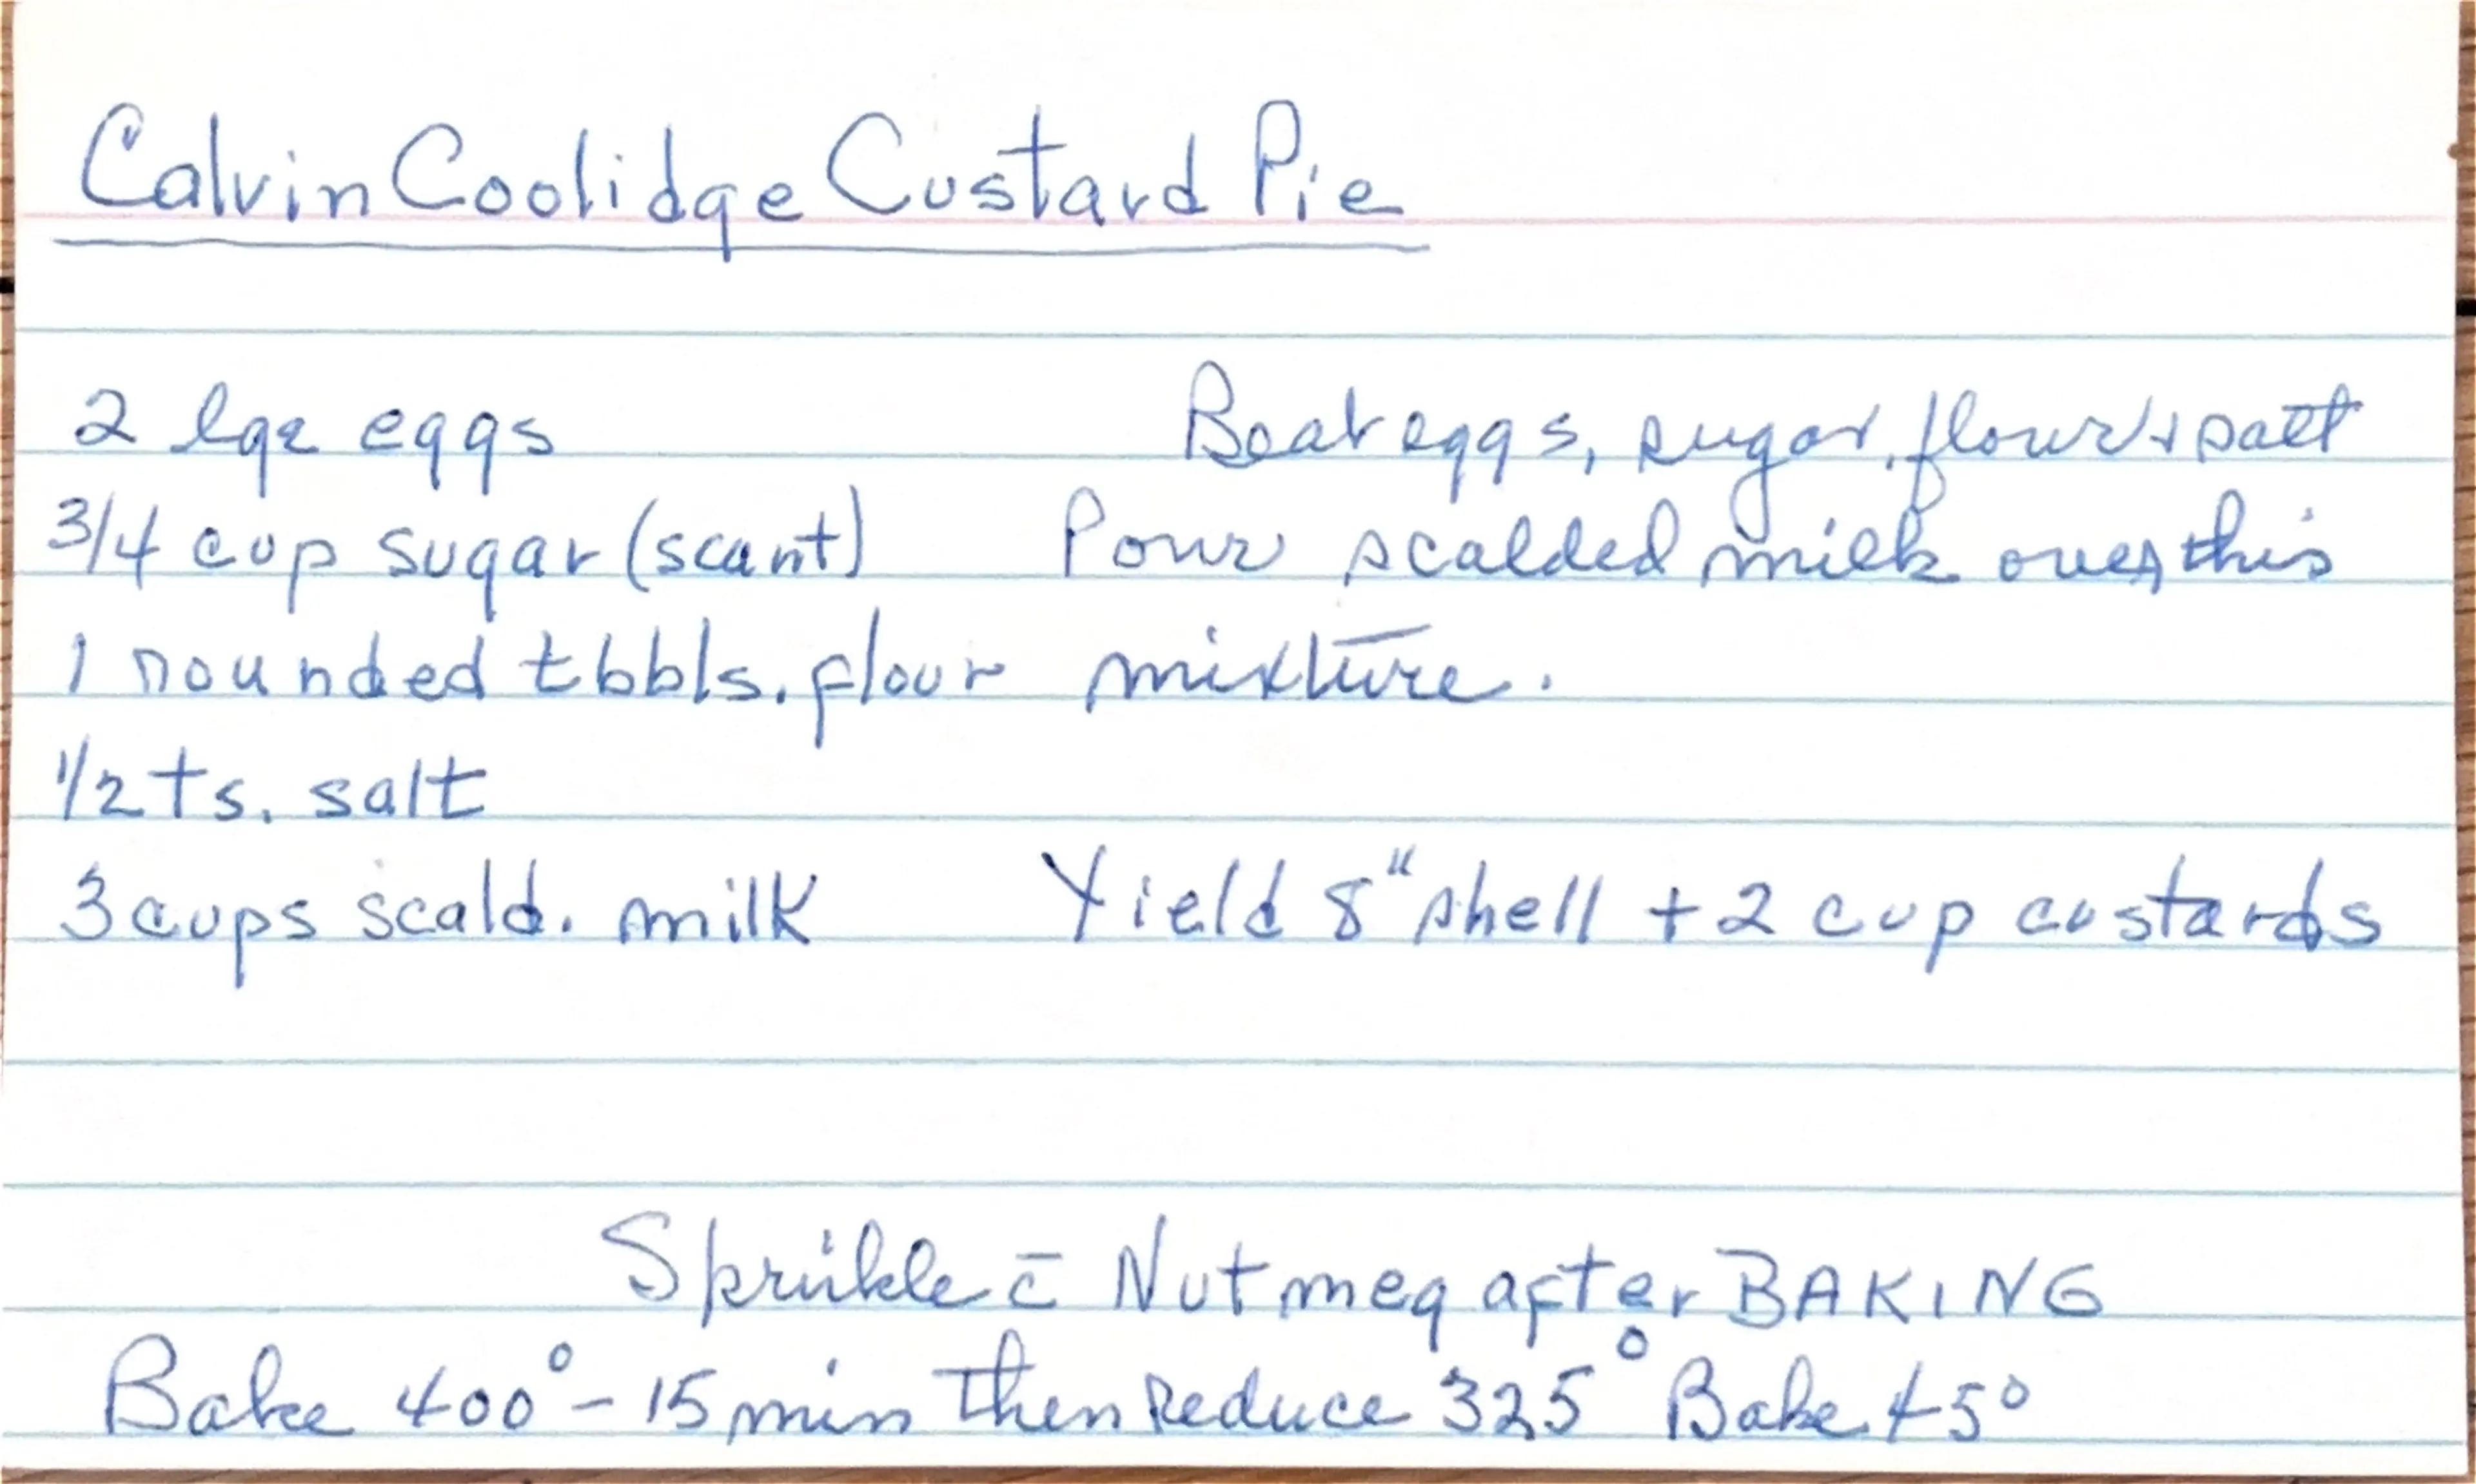 Calvin Coolidge Custard Pie
2 lge eggs
3/4 cup sugar (scant)
1 rounded tbbls. flour
1/2 ts. salt
3 cups scald. milk
Beat eggs, sugar, flour + salt
Pour scalded milk over this
mixture.
Yield 8" shell + 2 cup custards
Sprinkle c̄ Nutmeg after BAKING
Bake 400° - 15 min then reduce 325° Bake 45°